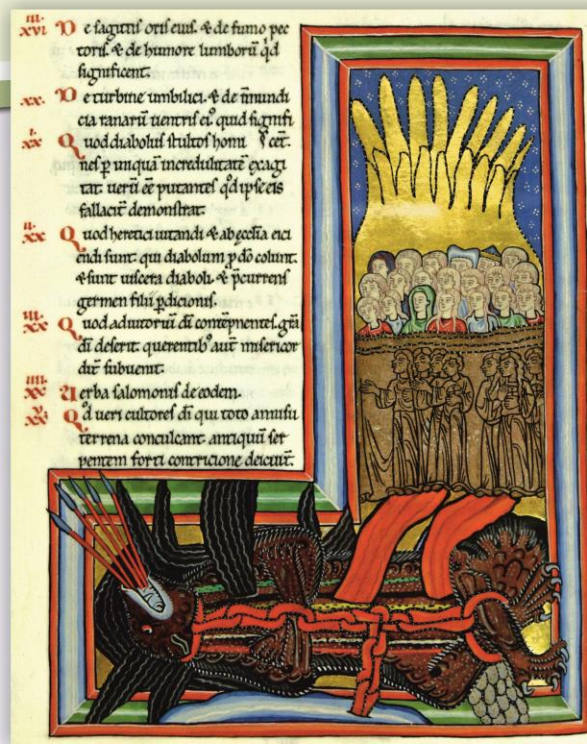 iii. xvi De sagittis oris eius. & de fumo pec
toris. & de humore lumborū qd
significent.
xx. De turbine umbilici. & de īmundi
cia ranarū uentris ei⁹ quid signifi
cēt.
i. xx Quod diabolus stultos homi
nes p̄ unquā incredulitatē exagi
tat. uerū eē putantes qd ipse eis
fallacit̄ demonstrat.
ii. xx Quod heretici uitandi & ab ęcclia eici
endi sunt. qui diabolum p̄ dō colunt.
& sunt uiscera diaboli. & p̄currens
germen filii p̄dicionis.
iii. xx Quod adiutoriū dī contēpnentes. grā
dī deserit. querentib⁹ aut̄ misericor
dit̄ subuenit.
iiii. xx Uerba salomonis de eodem.
v. xx Qd ueri cultores dī qui toto annisu
terrena conculcant. antiquū ser
pentem forti contricione deiciūt.